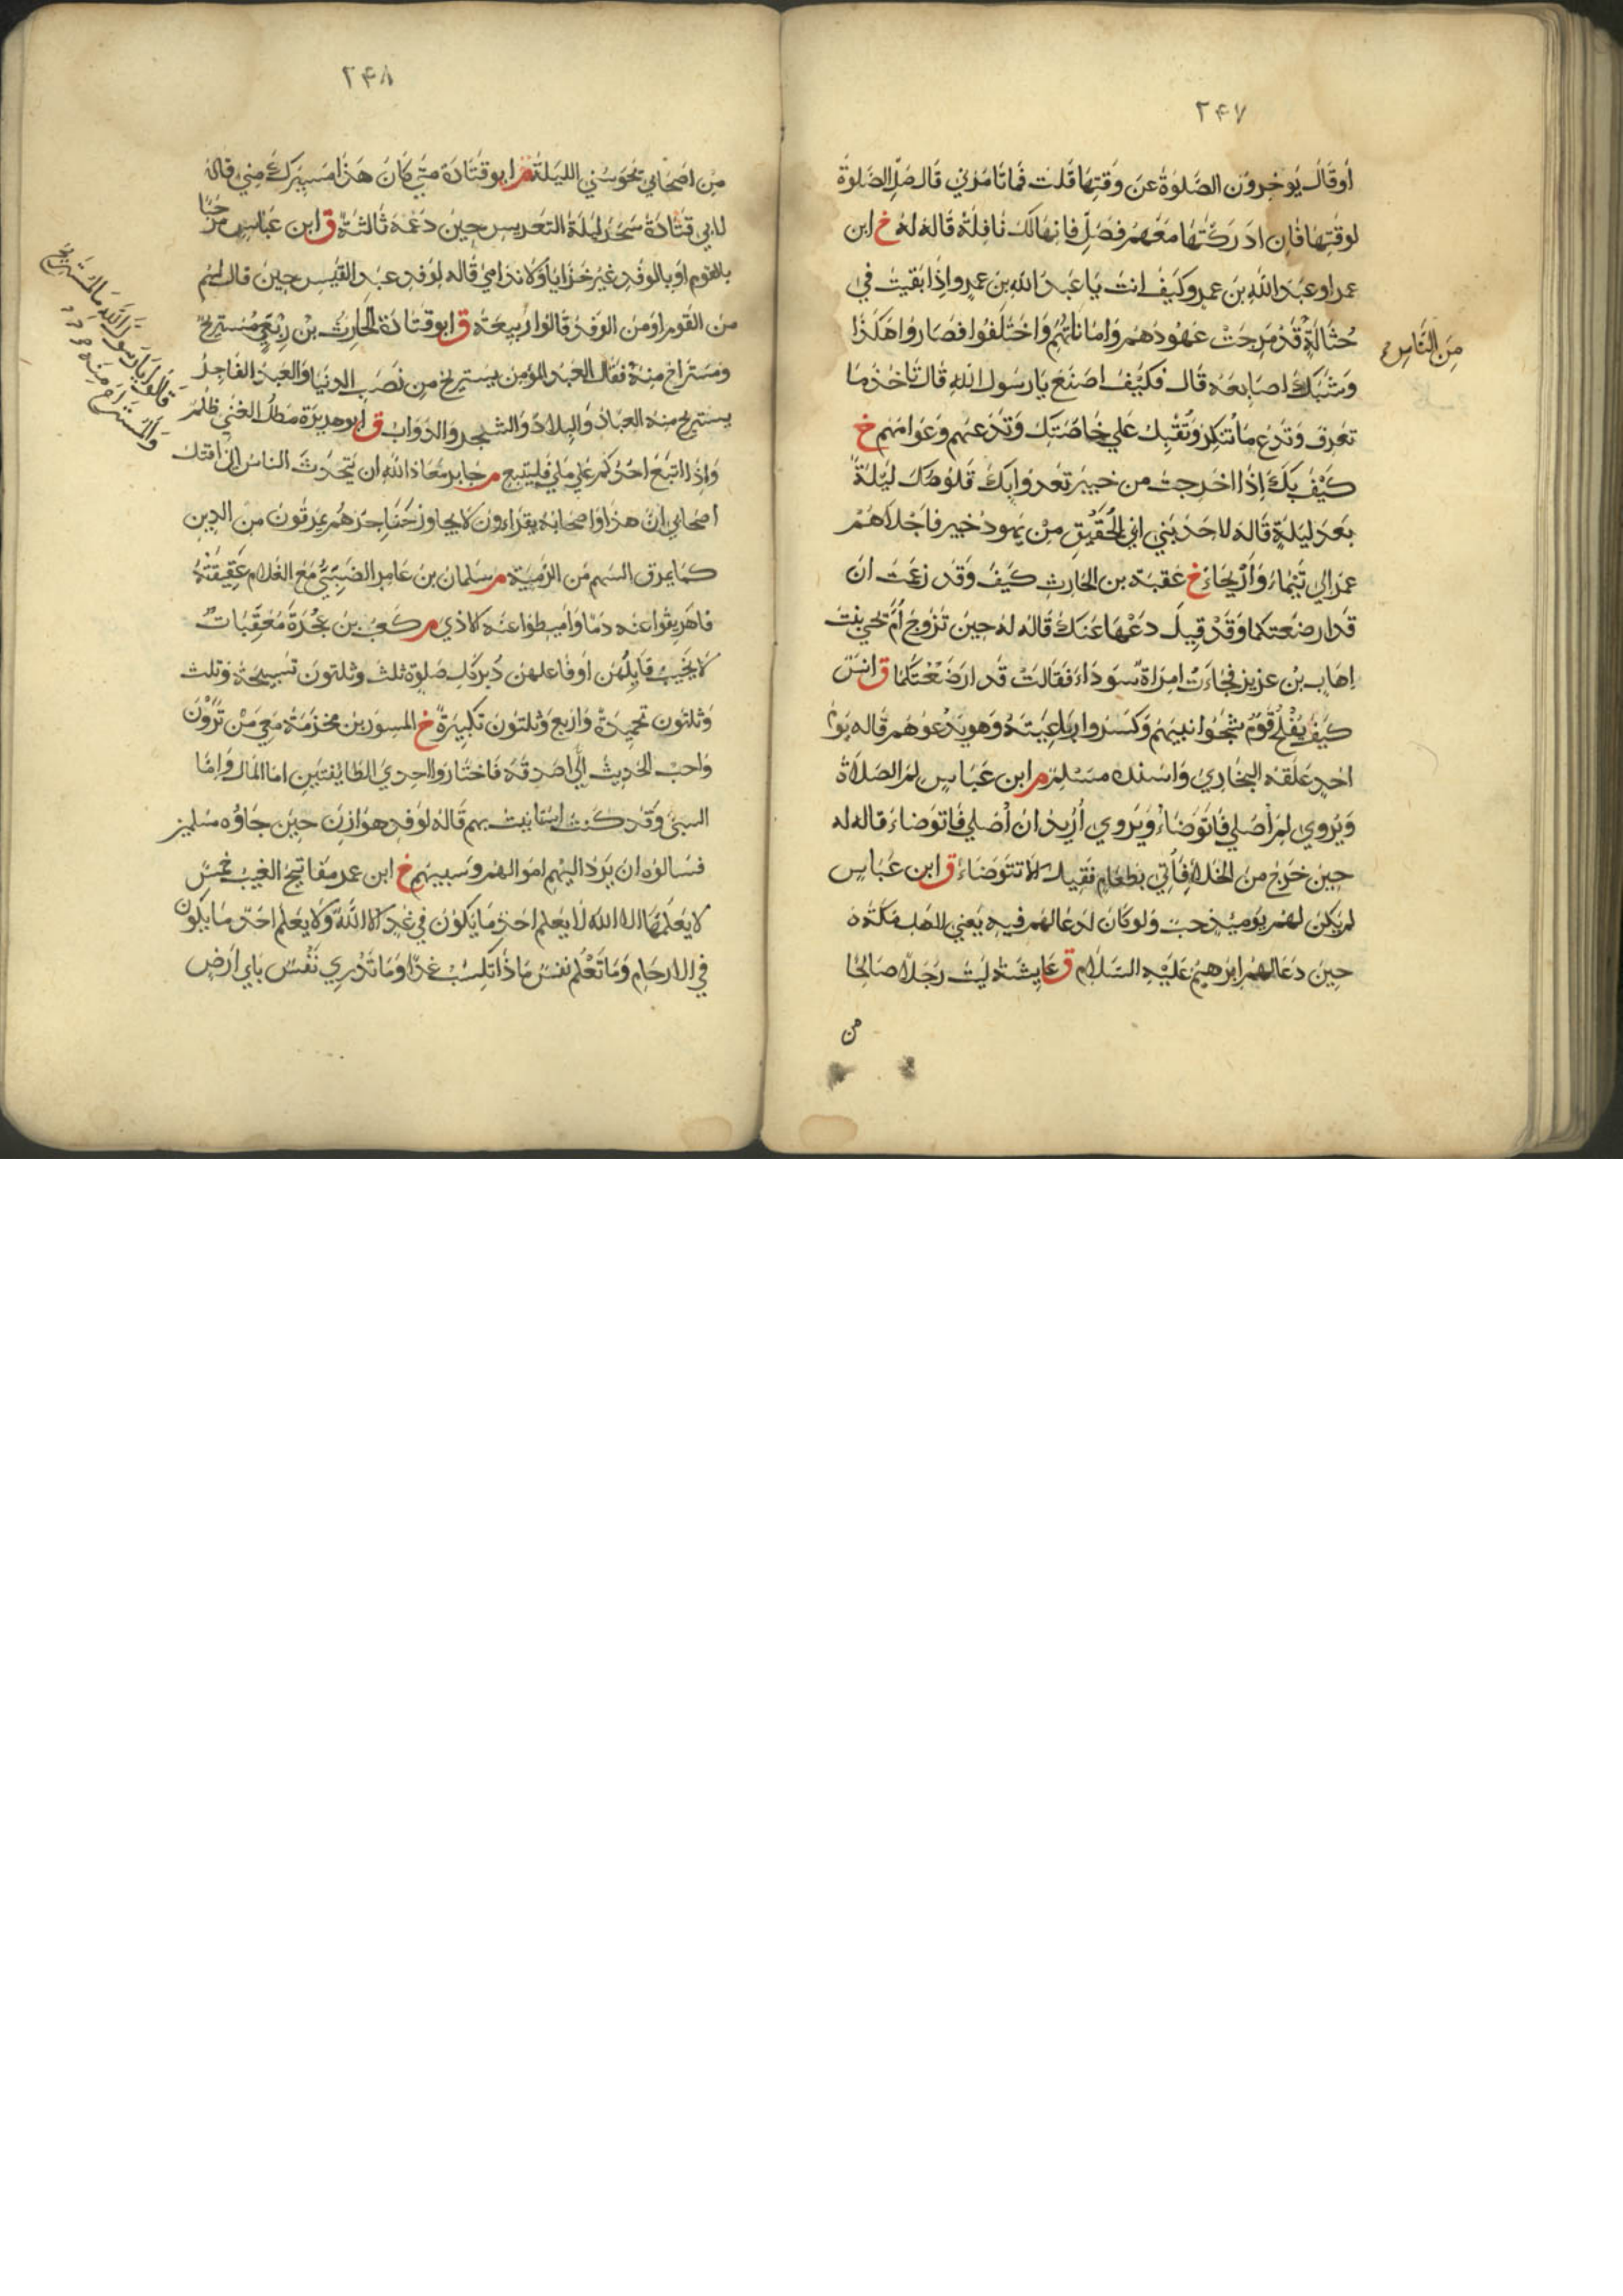 ٢٤٧
أوقال يؤخرون الصلوة عن وقتها قلت فما تامرني قال صل الصلوة
لوقتها فان ادركتها معهم فصل فانها لك نافلة قاله له خ ابن
عمر او عبد الله بن عمرو كيف انت يا عبد الله بن عمرو اذا بقيت في
حثالة قد مرجت عهودهم واماناتهم واختلفوا فصاروا هكذا
من الناس
وشبك اصابعه قال فكيف اصنع يا رسول الله قال تاخذ ما
تعرف وتدع ما تنكر وتقبل على خاصتك وتدعهم وعوامهم خ
كيف بك اذا اخرجت من خيبر تعدوا بك قلوصك ليلة
بعد ليلة قاله لاحد بني ابي الحقيق من يهود خيبر فاجلاهم
عمر الى تيماء واريحاء خ عقبة بن الحارث كيف وقد زعمت ان
قد ارضعتكما وقد قيل دعها عنك قاله له حين تزوج أم يحيى بنت
إهاب بن عزيز فجاءت امراة سوداء فقالت قد ارضعتكما ق انس
كيف يفلح قوم شجوا نبيهم وكسروا رباعيته وهو يدعوهم قاله يوم
احد علقه البخاري واسنده مسلم م ابن عباس لم الصلاة
ويروى لم أصلي فاتوضاء ويروى أريد ان أصلي فاتوضاء قاله له
حين خرج من الخلاء فأتي بطعام فقيل لا تتوضاء ق ابن عباس
لم يكن لهم يوميذ حب ولو كان لدعا لهم فيه يعني لاهل مكة
حين دعا لهم ابرهيم عليه السلام ق عايشة ليت رجلا صالحا
من
٢٤٨
من اصحابي يحرسني الليلة م ابو قتادة متى كان هذا مسيرك مني قاله
لابي قتادة سحر ليلة التعريس حين دعمه ثالثة ق ابن عباس مرحبا
بالقوم او بالوفد غير خزايا ولا ندامى قاله لوفد عبد القيس حين قال لهم
من القوم او من الوفد قالوا ربيعة ق ابو قتادة الحارث بن ربعي مستريح
ومستراح منه فقال العبد المؤمن يستريح من نصب الدنيا والعبد الفاجر
قالوا يا رسول الله ما المستريح
والمستراح منه
يستريح منه العباد والبلاد والشجر والدواب ق ابو هريرة مطل الغني ظلم
واذا اتبع احدكم على ملي فليتبع م جابر معاذ الله ان يتحدث الناس اني اقتل
اصحابي ان هذا واصحابه يقراءون لا يجاوز حناجرهم يمرقون من الدين
كما يمرق السهم من الرمية م سلمان بن عامر الضبي مع الغلام عقيقته
فاهريقوا عنه دما واميطوا عنه الاذي م كعب بن عجرة معقبات
لا يخيب قايلهن او فاعلهن دبر كل صلوة ثلث وثلثون تسبيحة وثلث
وثلثون تحميدة واربع وثلثون تكبيرة خ المسور بن مخزمة معي من ترون
واحب الحديث إلي اصدقه فاختاروا احدي الطايفتين اما المال واما
السبي وقد كنت استانيت بهم قاله لوفد هوازن حين جاؤه مسلمين
فسالوه ان يرد اليهم اموالهم وسبيهم خ ابن عمر مفاتيح الغيب خمس
لا يعلمها الا الله لا يعلم احد ما يكون في غد الا الله ولا يعلم احد ما يكون
في الارحام وما تعلم نفس ماذا تكسب غدا وما تدري نفس باي ارض